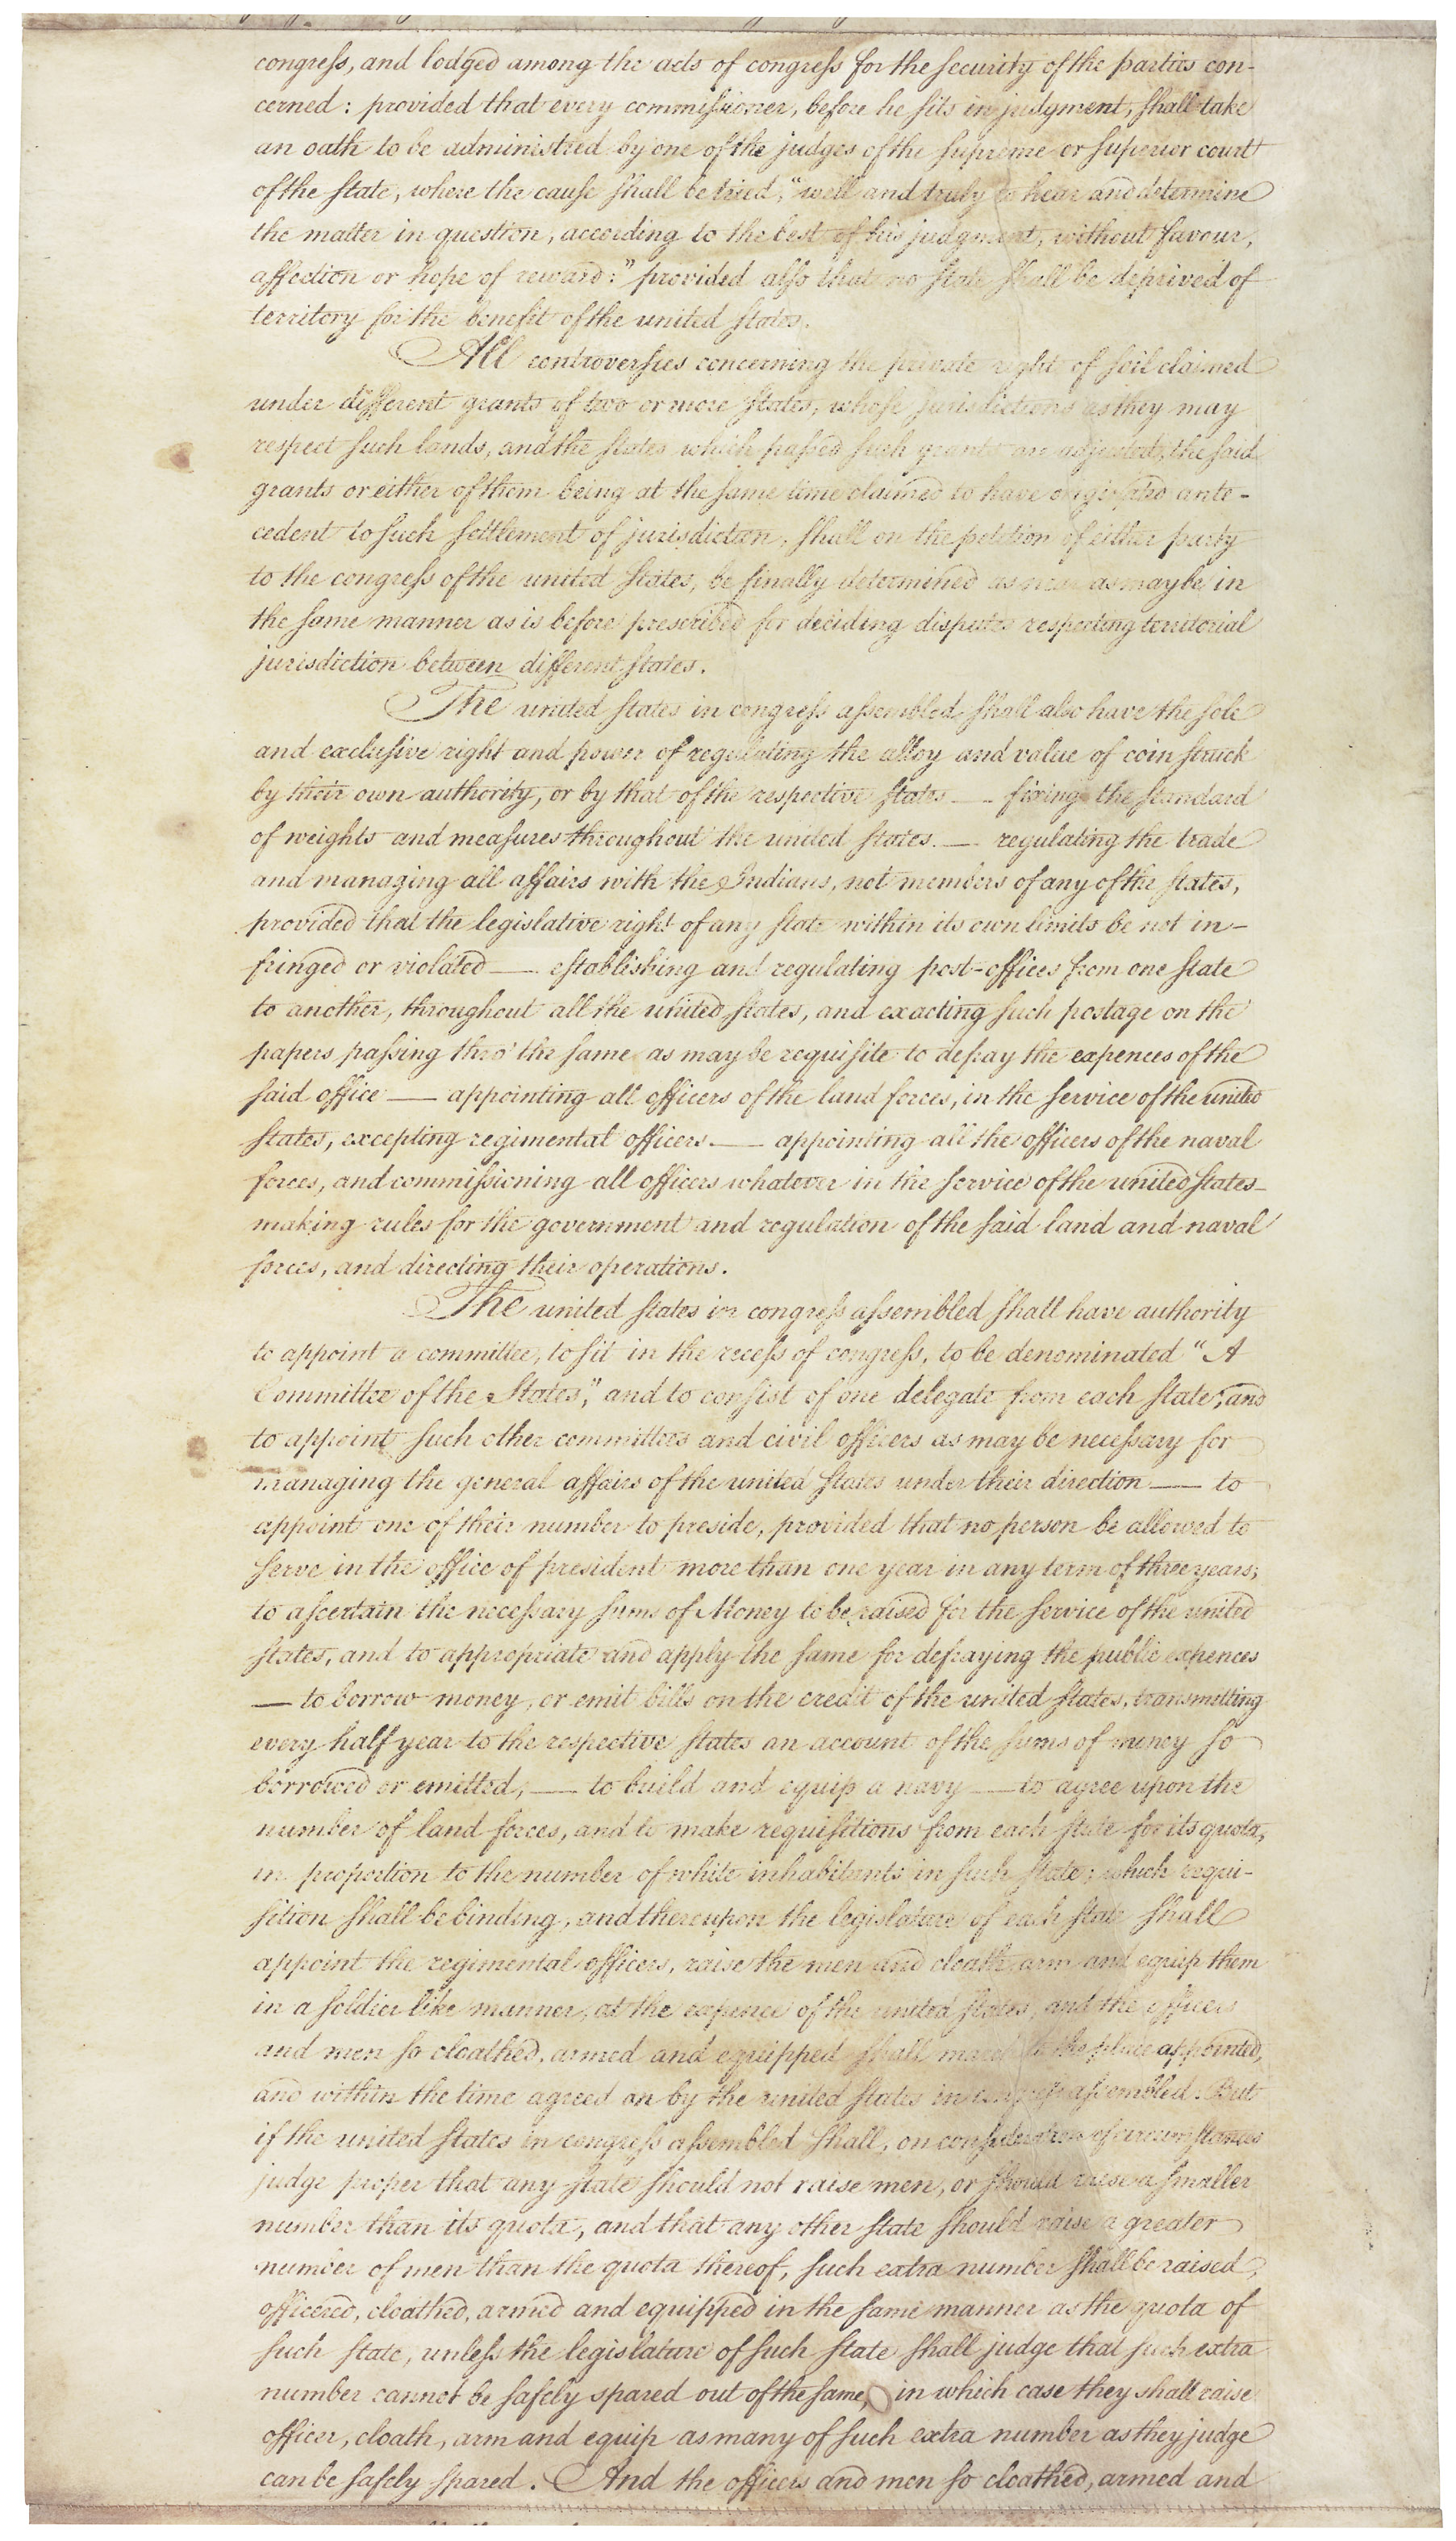 congress, and lodged among the acts of congress for the security of the parties con-
cerned: provided that every commissioner, before he sits in judgment, shall take
an oath to be administred by one of the judges of the supreme or superior court
of the state, where the cause shall be tried, "well and truly to hear and determine
the matter in question, according to the best of his judgment, without favour,
affection or hope of reward:" provided also that no state shall be deprived of
territory for the benefit of the united states.
All controversies concerning the private right of soil claimed
under different grants of two or more states, whose jurisdictions as they may
respect such lands, and the states which passed such grants are adjusted, the said
grants or either of them being at the same time claimed to have originated ante-
cedent to such settlement of jurisdiction, shall on the petition of either party
to the congress of the united states, be finally determined as near as may be in
the same manner as is before prescribed for deciding disputes respecting territorial
jurisdiction between different states.
The united states in congress assembled shall also have the sole
and exclusive right and power of regulating the alloy and value of coin struck
by their own authority, or by that of the respective states — fixing the standard
of weights and measures throughout the united states. — regulating the trade
and managing all affairs with the Indians, not members of any of the states,
provided that the legislative right of any state within its own limits be not in-
fringed or violated — establishing and regulating post-offices from one state
to another, throughout all the united states, and exacting such postage on the
papers passing thro' the same as may be requisite to defray the expences of the
said office — appointing all officers of the land forces, in the service of the united
states, excepting regimental officers. — appointing all the officers of the naval
forces, and commissioning all officers whatever in the service of the united states —
making rules for the government and regulation of the said land and naval
forces, and directing their operations.
The united states in congress assembled shall have authority
to appoint a committee, to sit in the recess of congress, to be denominated "A
Committee of the States," and to consist of one delegate from each state; and
to appoint such other committees and civil officers as may be necessary for
managing the general affairs of the united states under their direction — to
appoint one of their number to preside, provided that no person be allowed to
serve in the office of president more than one year in any term of three years;
to ascertain the necessary sums of Money to be raised for the service of the united
states, and to appropriate and apply the same for defraying the public expences
— to borrow money, or emit bills on the credit of the united states, transmitting
every half year to the respective states an account of the sums of money so
borrowed or emitted, — to build and equip a navy — to agree upon the
number of land forces, and to make requisitions from each state for its quota,
in proportion to the number of white inhabitants in such state; which requi-
sition shall be binding, and thereupon the legislature of each state shall
appoint the regimental officers, raise the men and cloath, arm and equip them
in a soldier like manner, at the expence of the united states, and the officers
and men so cloathed, armed and equipped shall march to the place appointed,
and within the time agreed on by the united states in congress assembled. But
if the united states in congress assembled shall, on consideration of circumstances
judge proper that any state should not raise men, or should raise a smaller
number than its quota, and that any other state should raise a greater
number of men than the quota thereof, such extra number shall be raised,
officered, cloathed, armed and equipped in the same manner as the quota of
such state, unless the legislature of such state shall judge that such extra
number cannot be safely spared out of the same, in which case they shall raise
officer, cloath, arm and equip as many of such extra number as they judge
can be safely spared. And the officers and men so cloathed, armed and